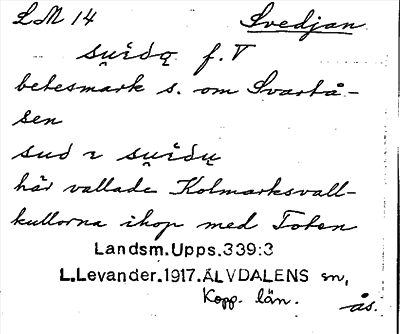 LM 14 Svedjan
sụidą f. V
betesmark s. om Svartå-
sen
sud ı sụidų
här vallade Kolmarksvall-
kullorna ihop med Toten
Landsm.Upps.339:3
L.Levander.1917.ÄLVDALENS sn,
Kopp. län.
ås.